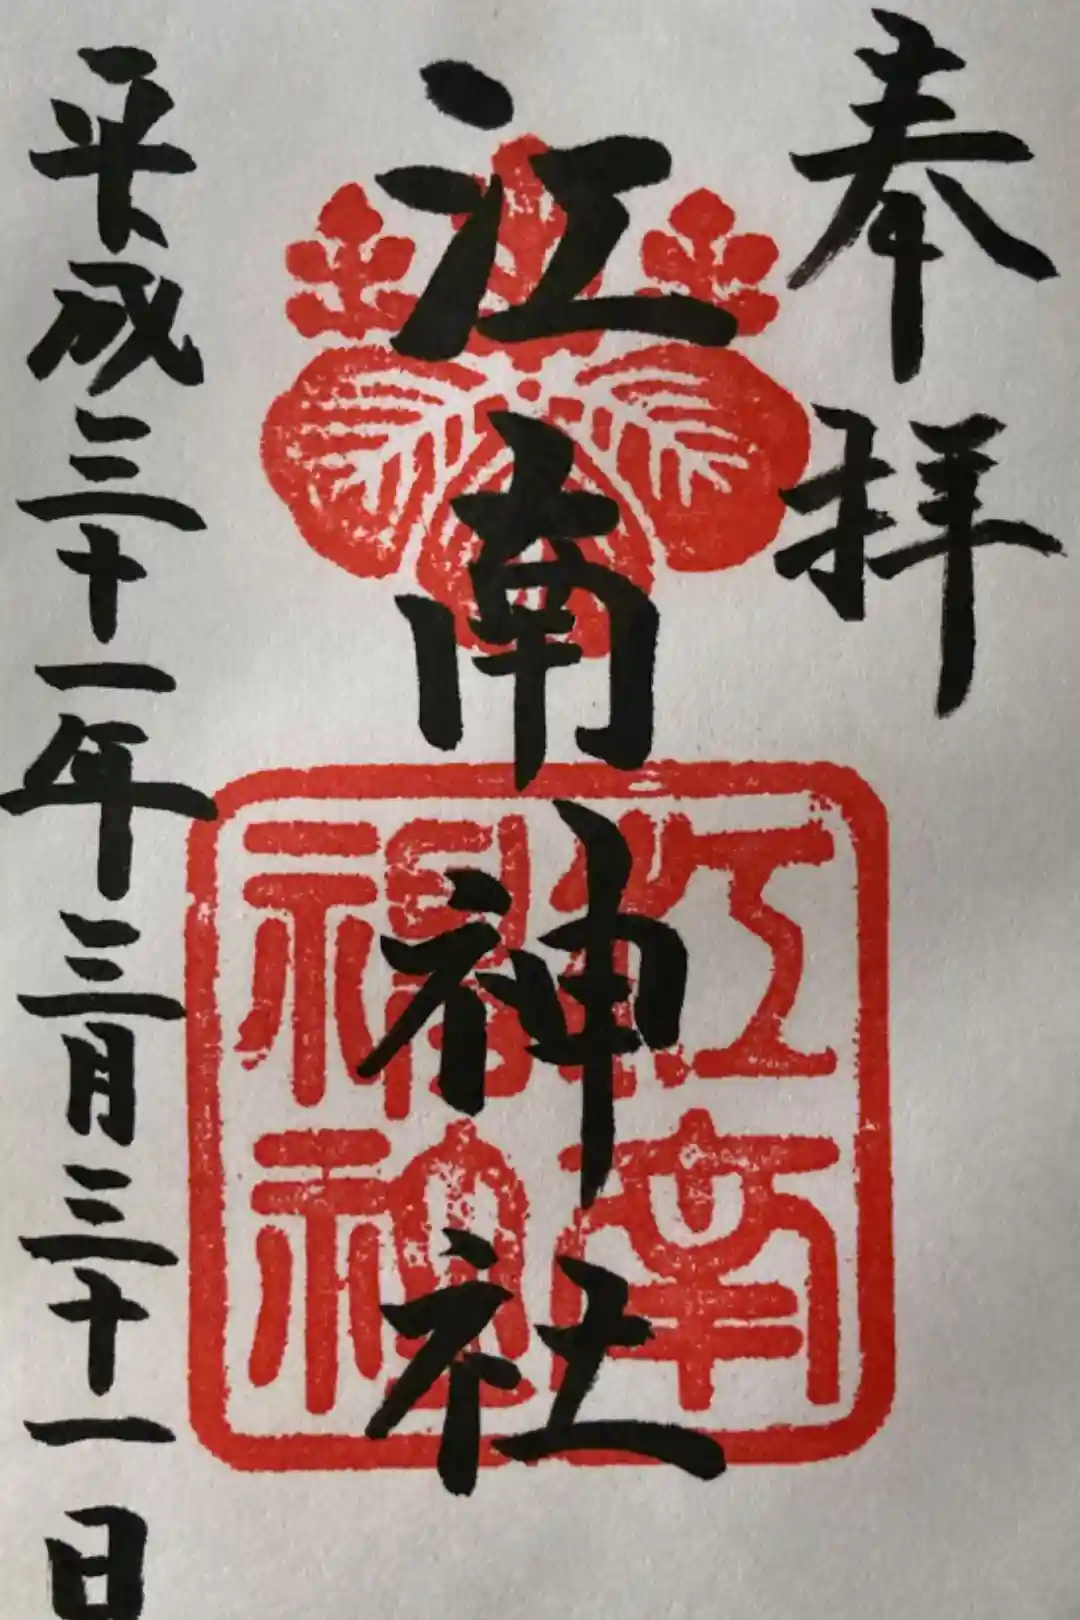 奉拝
江南神社
平成三十一年三月三十一日
江南